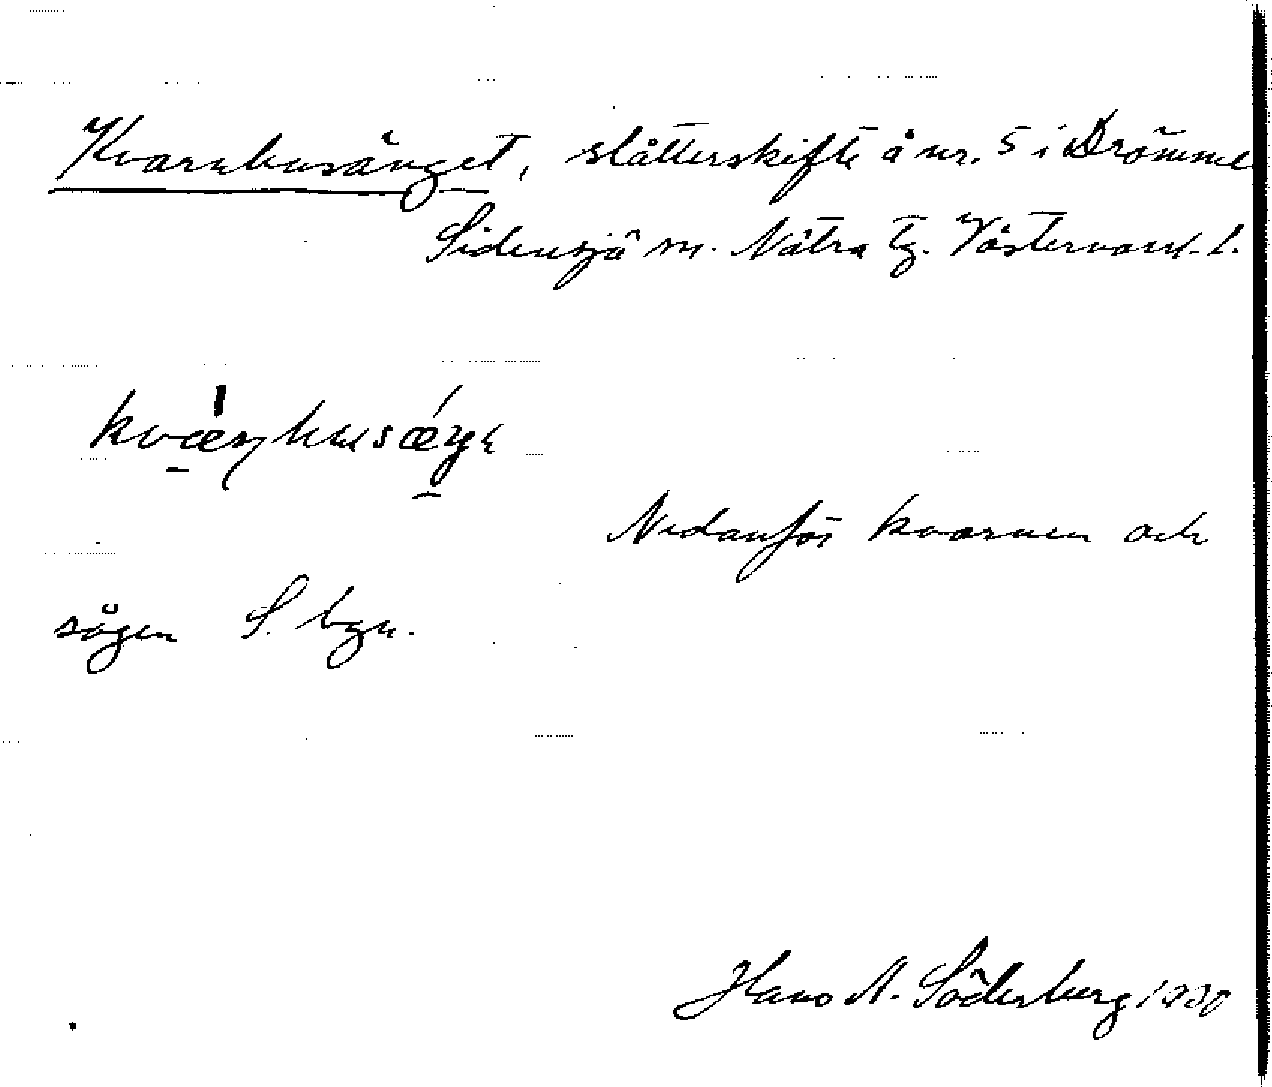 Kvarnhusänget, slåtterskifte å nr. 5 i Drömme
Sidensjö sn. Nätra tg. Västernorrl. l.
kvæɳhusæŋε
Nedanför kvarnen och
sågen S. byn.
Hans A. Söderberg 1930